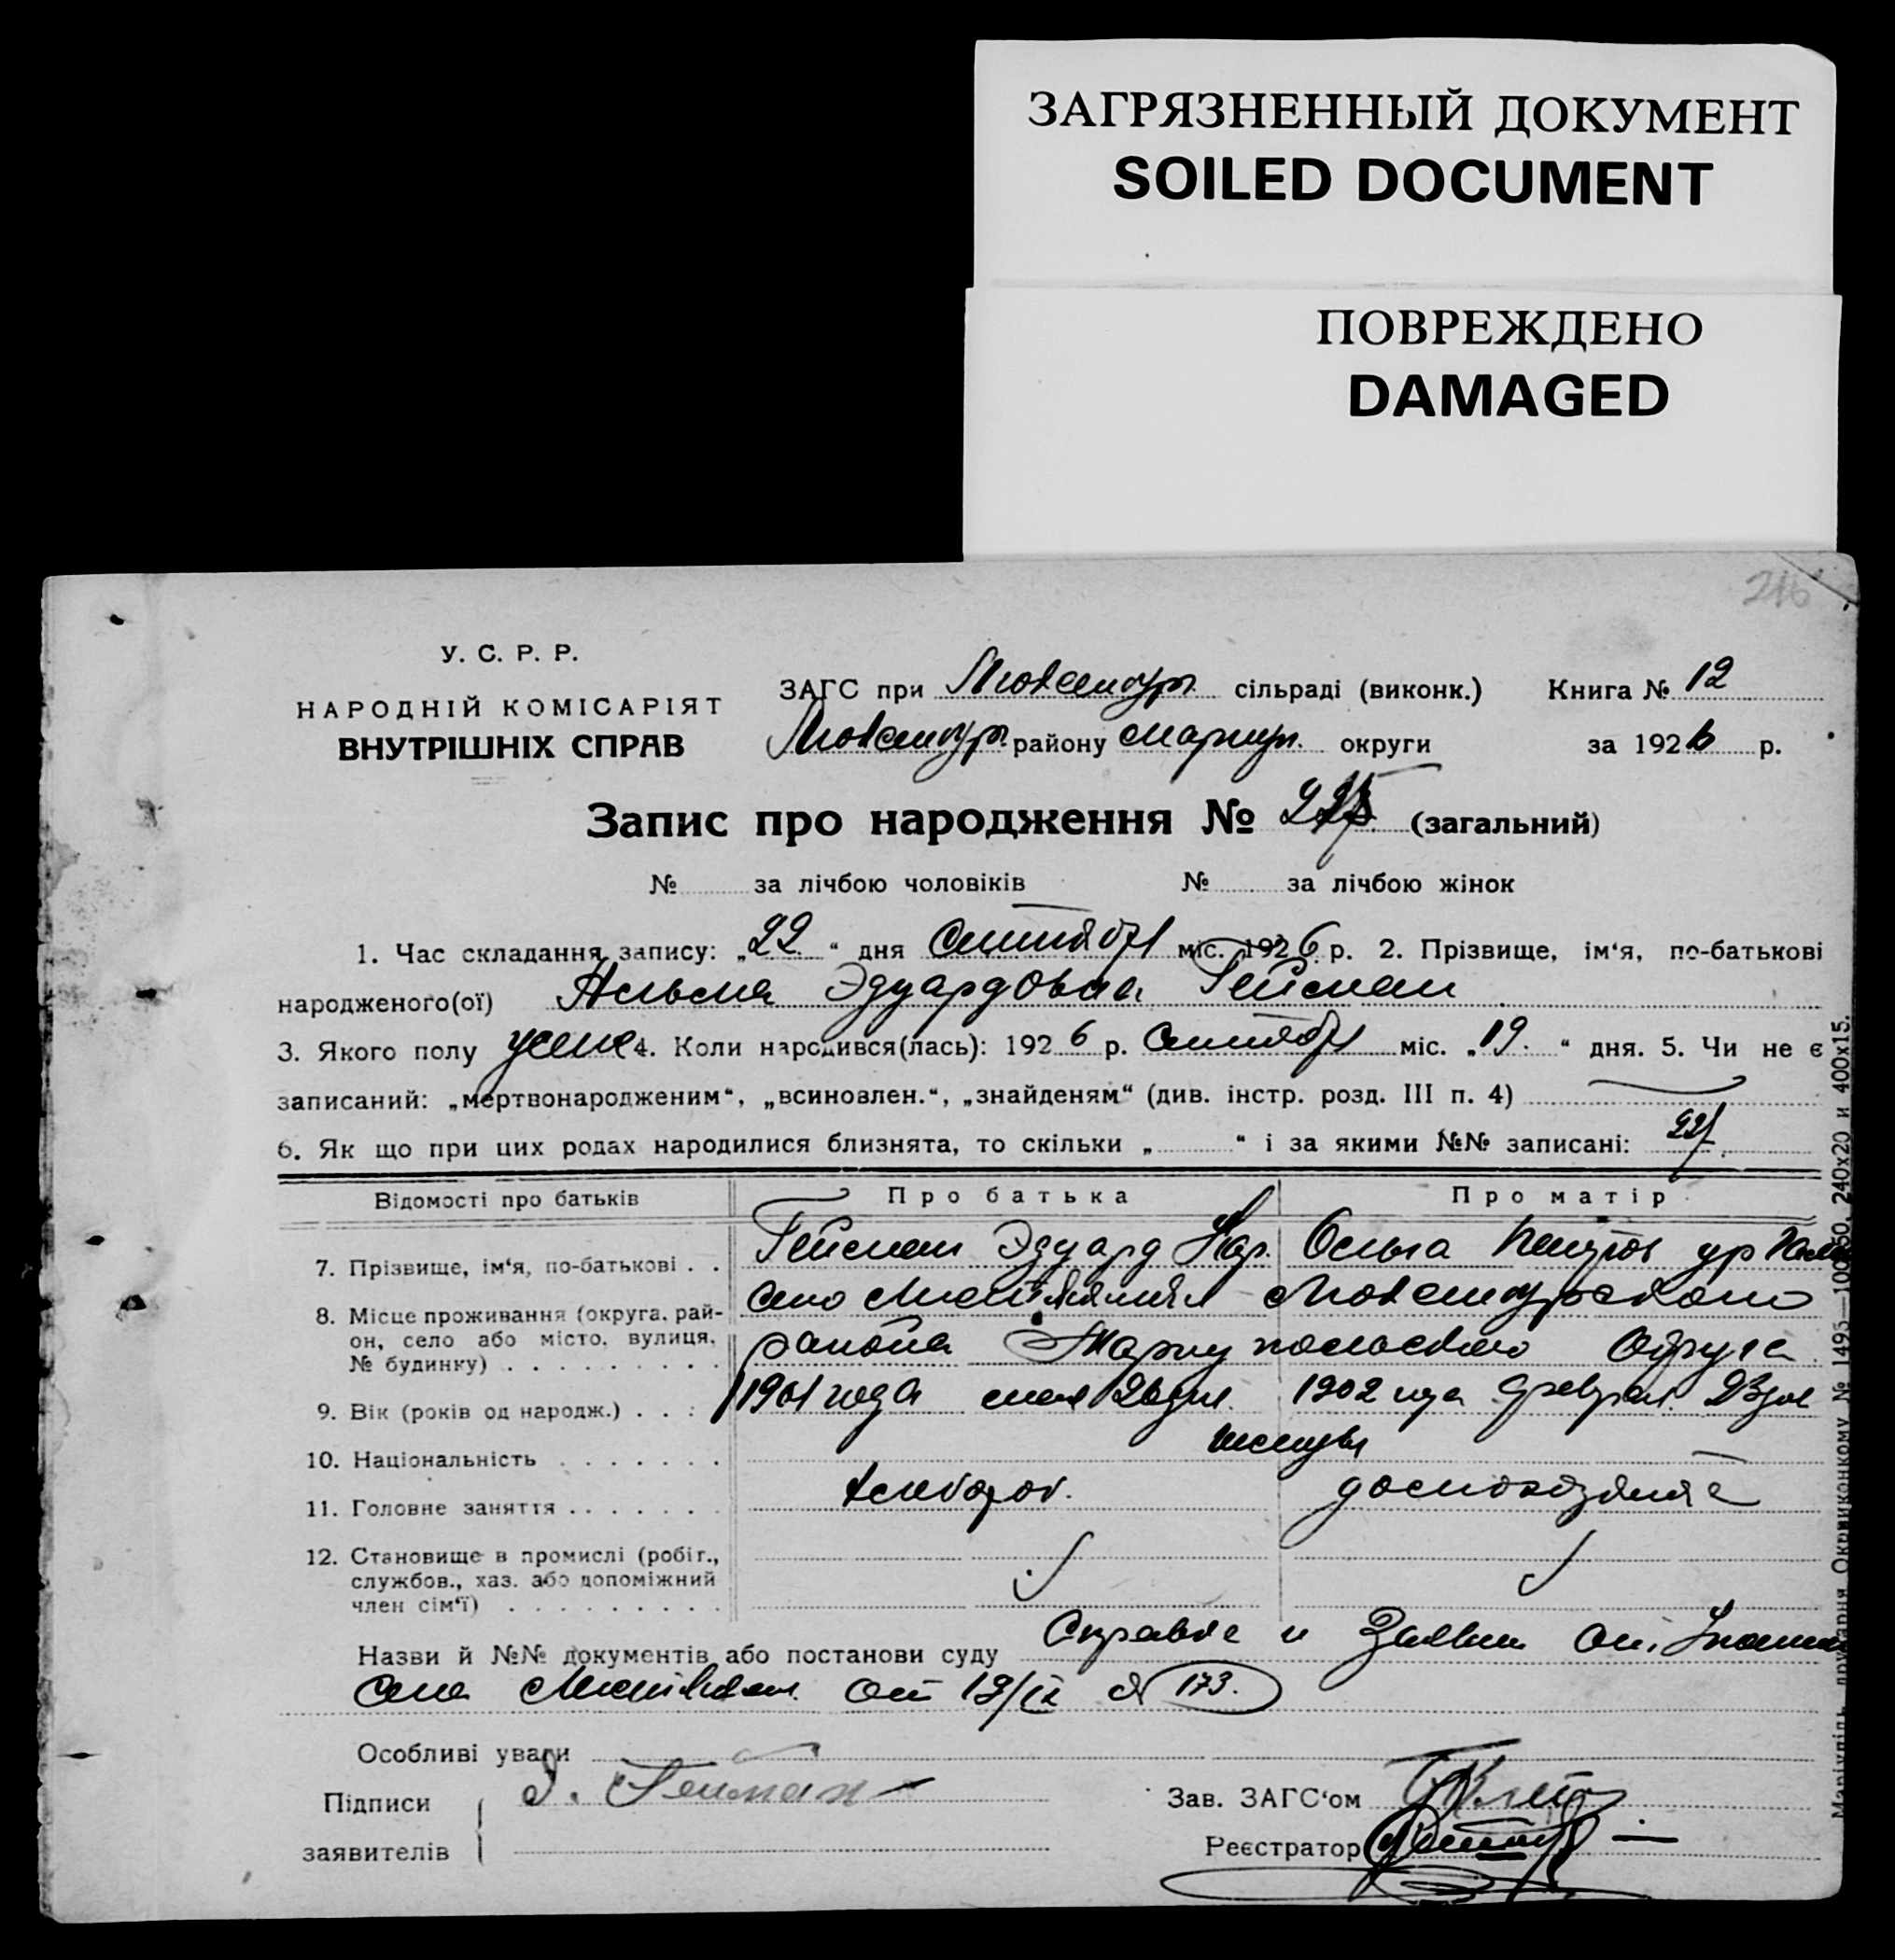 ЗАГРЯЗНЕННЫЙ ДОКУМЕНТ
SOILED DOCUMENT
ПОВРЕЖДЕНО
DAMAGED
216
У. С. Р. Р.
НАРОДНІЙ КОМІСАРІЯТ
ВНУТРІШНІХ СПРАВ
ЗАГС при Люксембург. сільраді (виконк.) Книга № 12
Люксембург. району Мариуп. округи за 1926 р.
Запис про народження № (загальний)
№ за лічбою чоловіків № за лічбою жінок
1. Час складання запису: „22“ дня Сентября міс. 1926 р. 2. Прізвище, ім‘я, по-батькові
народженого(ої) Эдуардовна Гейсман
3. Якого полу 4. Коли народився(лась): 1926 р. Сентября міс. „19.“ дня. 5. Чи не є
записаний: „мертвонародженим“, „всиновлен.“, „знайденям“ (див. інстр. розд. III п. 4)
6. Як що при цих родах народилися близнята, то скільки „ “ і за якими №№ записані:
Відомості про батьків Про батька Про матір
7. Прізвище, ім‘я, по-батькові . . Гейсман Эдуард Ольга ур
8. Місце проживання (округа, рай-
он, село або місто, вулиця,
№ будинку) . . . . . . . . .
Село Люксембургского
района Мариупольского Округа
9. Вік (років од народж.) . . . 1901 года мая 26 дня. 1902 года Февраля
10. Національність . . . . . . . немцы
11. Головне заняття . . . . . . . хлебороб. домохозяйка
12. Становище в промислі (робіт.,
службов., хаз. або допоміжний
член сім‘ї) . . . . . . . . .
Назви й №№ документів або постанови суду Справке и
Села от 19/IX № 173.
Особливі уваги
Підписи
заявителів
Зав. ЗАГС‘ом
Реєстратор
Маріупіль, друкарня Окрвиконкому. № 1495—100
240х20 и 400х15.